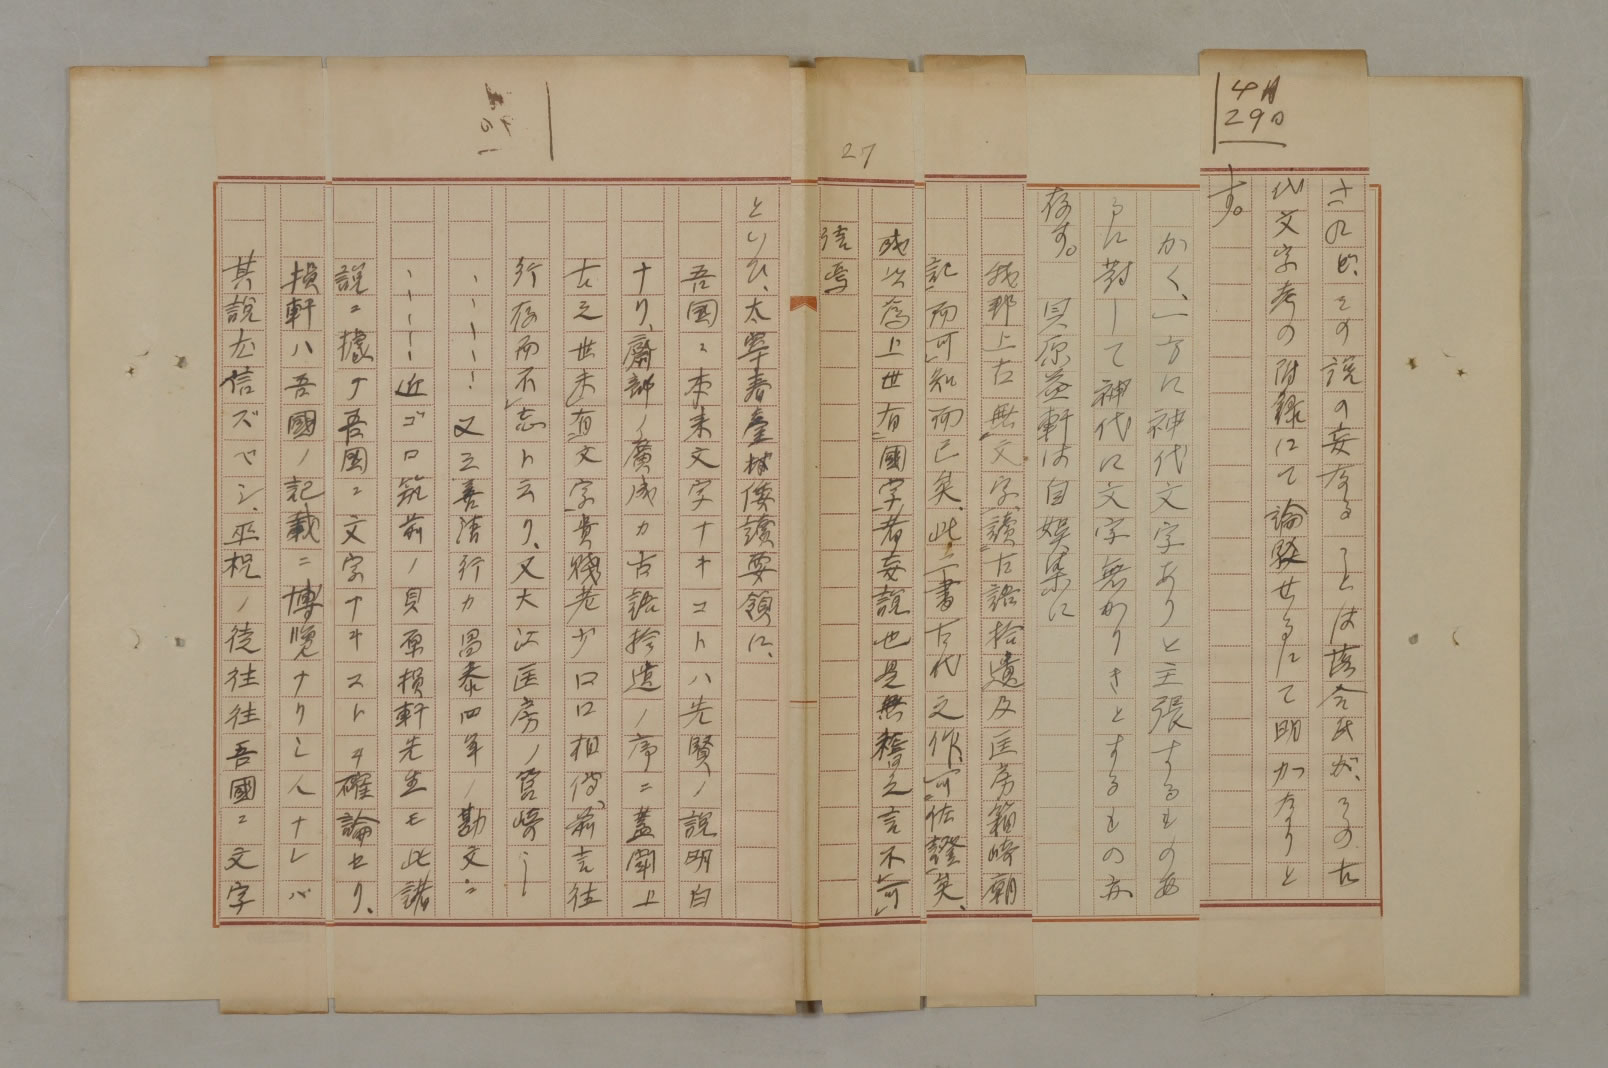 4月
29日
されど、その説の妄なることは落合氏が、その古
代文字考の附録にて論駁せるにて明かなりと
す。
かく、一方に神代文字ありと主張するものあ
るに対して神代に文字無かりきとするもの亦
存す。貝原益軒は自娯集に
我邦上古無文字、讀古語拾遺及匡房箱崎廟
記而可知而已矣、此二書古代之作、可佐證矣、
或以為上世有國字者妄説也是無稽之言不可
信焉
27
といひ、太宰春臺は倭讀要領に、
吾國ニ本来文字ナキコトハ先賢ノ説明白
ナリ、齋部ノ廣成カ古語拾遺ノ序ニ蓋聞上
古之世未有文字貴賤老少口口相傳、前言往
行存而不忘ト云リ、又大江匡房ノ筥崎ニ
、、、、、、又三善清行カ昌泰四年ノ勘文ニ
、、、、、近ゴロ筑前ノ貝原損軒先生モ此諸
説ニ據テ吾國ニ文字ナキコトヲ確論セリ、
損軒ハ吾國ノ記載ニ博覧ナリシ人ナレバ
其説尤信ズベシ、巫祝ノ徒往往吾國ニ文字